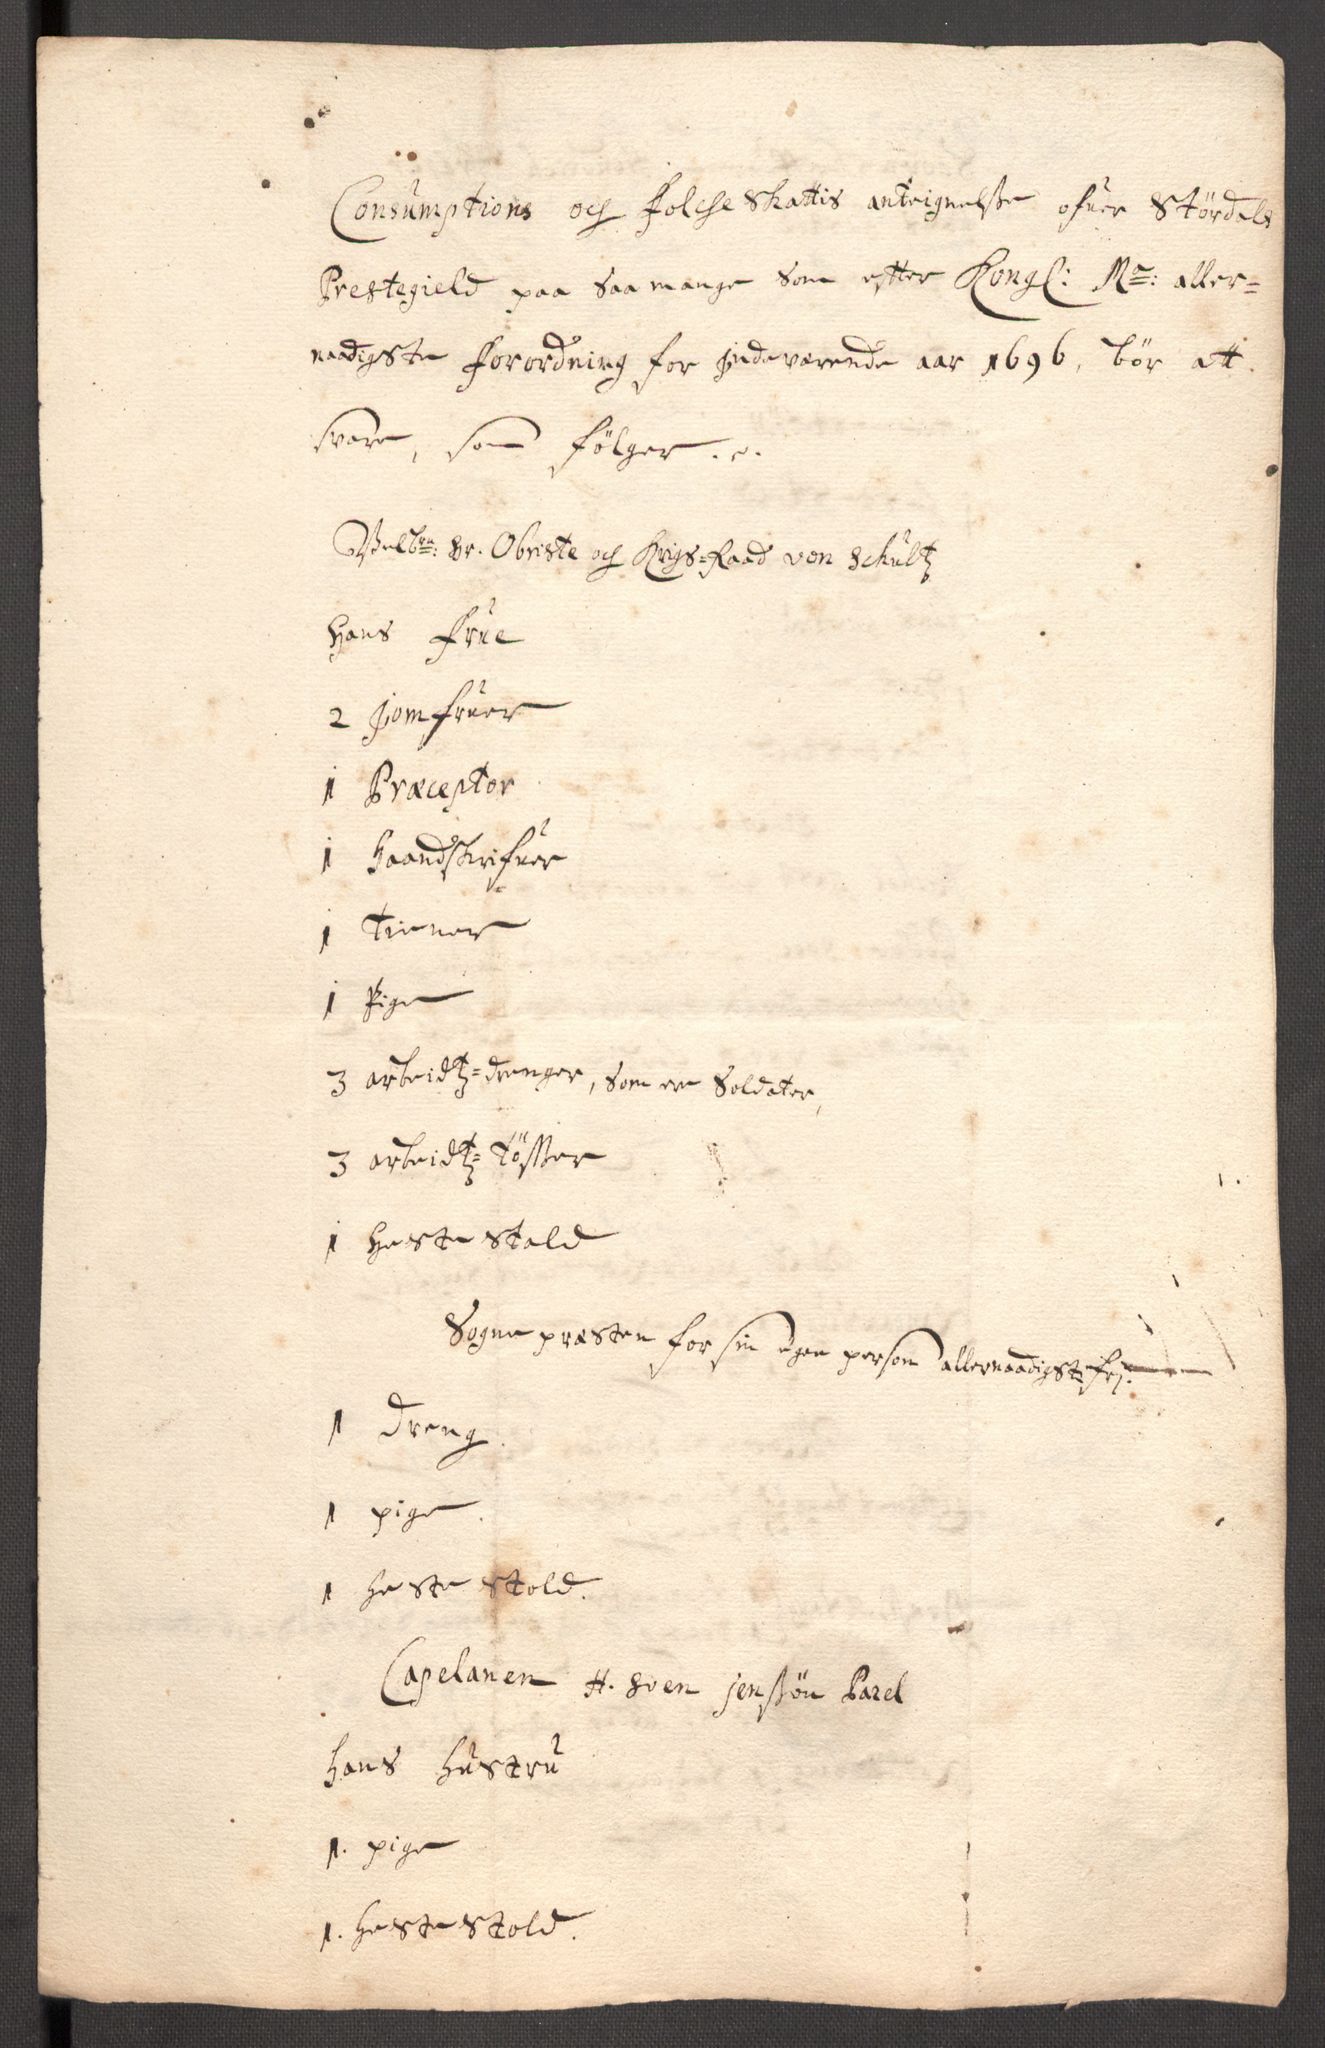 Consumptions och Folche Skattis anteignelsse ofuer Stördals
Prestegield paa saa mange som efter Kongl: Ma: aller=
naadigste Forordning for Jndeværende aar 1696, bör att
svare, som fölger.
Velbne: Hr. Obriste och Krigs=Raad von Schultz
Hans Frue
2 Jomfruer
1 Præceptor
1 Haandskrifuer
1 Tiener
1 Pige
3 arbeidtz=drenger, som er Soldater,
3 arbeidtz=Tösser
1 Heste Stald
Sogne præsten for sin egen person allernaadigst frj.
1 dreng.
1 pige.
1 heste stold.
Capelanen H. Sven Jenssön Parel
Hans Hustru
1. pige
1. heste stold.